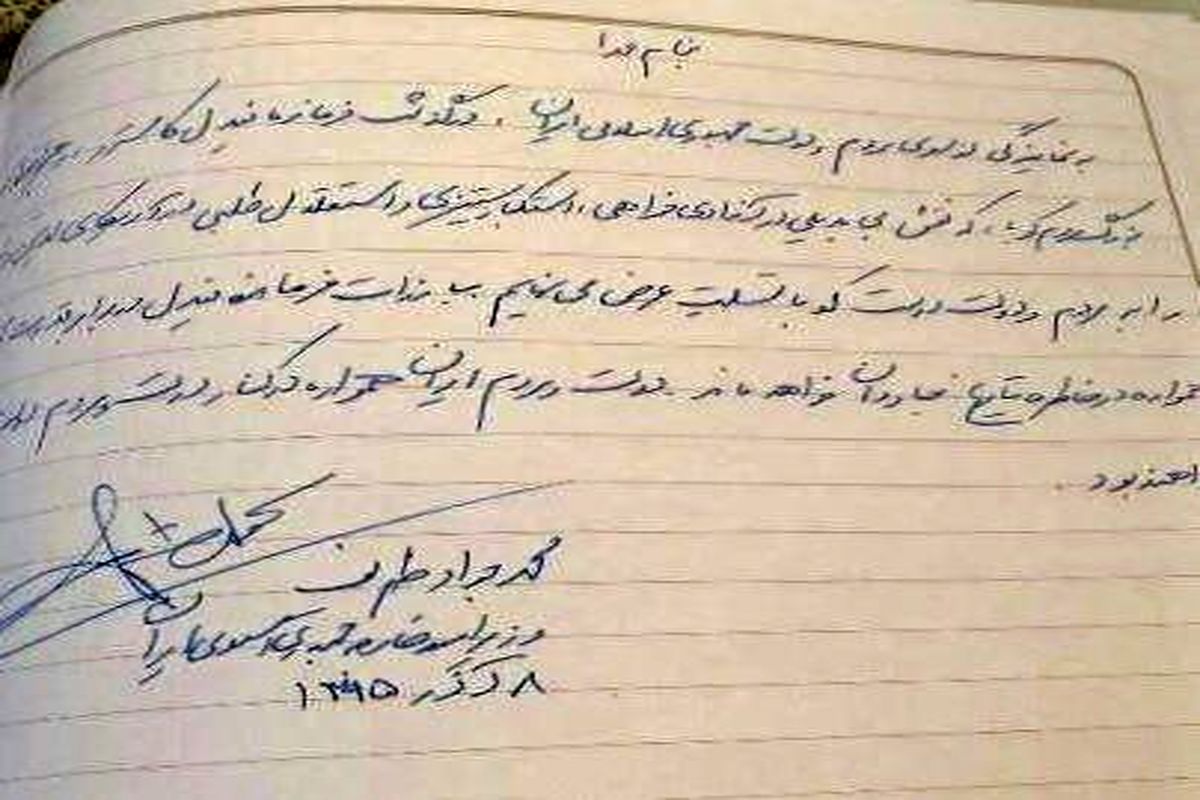 بنام خدا
به نمایندگی از سوی مردم و دولت جمهوری اسلامی ایران ، درگذشت فرمانده فیدل کاسترو ، رهبر
بزرگ مردم کوبا ، که نقش بی بدیلی در آزادی خواهی ، استکبارستیزی و استقلال طلبی در آمریکای
را به مردم و دولت دوست کوبا تسلیت عرض می نمایم . مبارزات فرمانده فیدل در برابر
همواره در خاطره تاریخ جاودان خواهد ماند . دولت و مردم ایران همواره در کنار دولت و مردم
خواهند بود .
محمد جواد ظریف
وزیر امور خارجه جمهوری اسلامی ایران
۸ آذر ۱۳۹۵